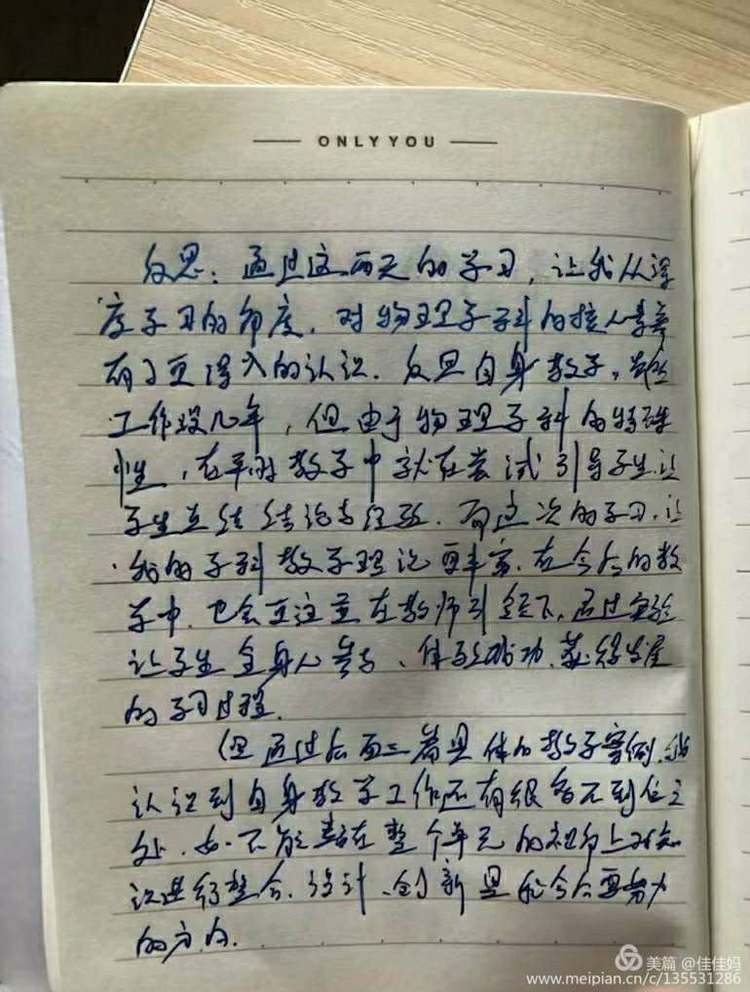 ONLY YOU
反思：通过这两天的学习，让我从深
度学习的角度，对物理学科的核心素养
有了更深入的认识．反思自身教学，
工作没几年，但由于物理学科的特殊
性，在平时教学中就在尝试引导学生，让
学生总结结论与经验．而这次的学习，让
我的学科教学理论更丰富．在今后的教
学中，也会更注重在教师引领下，通过实验
让学生全身心参与、体验成功、获得发展
的学习过程．
但通过后面三篇具体的教学案例，我
认识到自身教学工作还有很多不到位之
处，如不能站在整个单元的视角上对知
识进行整合、设计、创新是我今后要努力
的方向．
美篇 @佳佳妈
www.meipian.cn/c/135531286